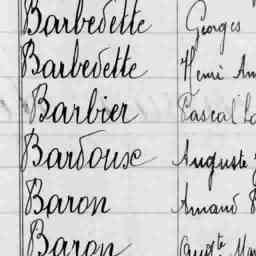 Barbedette Georges
Barbedette Henri
Barbier Pascal
Bardouse Auguste
Baron Amand
Baron Augte